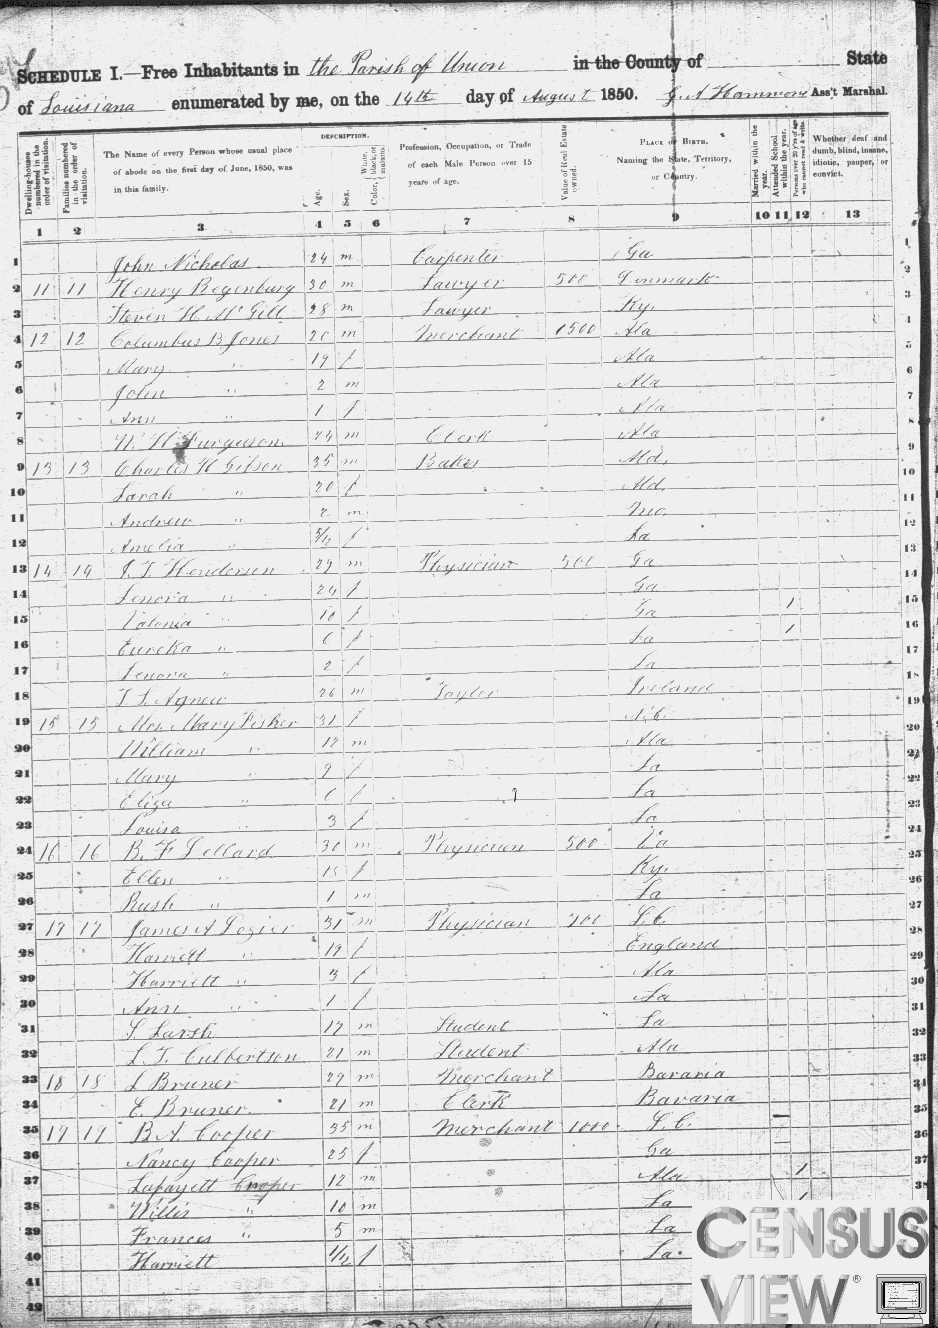 SCHEDULE I.—Free Inhabitants in the Parish of Union in the County of State
of Louisiana enumerated by me, on the 14th day of August 1850. G. A Hammons Ass't Marshal.
Dwelling-houses numbered in the order of visitation.
Families numbered in the order of visitation.
The Name of every Person whose usual place of abode on the first day of June, 1850, was in this family.
DESCRIPTION.
Age.
Sex.
Color, White, black, or mulatto.
Profession, Occupation, or Trade of each Male Person over 15 years of age.
Value of Real Estate owned.
PLACE OF BIRTH. Naming the State, Territory, or Country.
Married within the year.
Attended School within the year.
Persons over 20 y'rs of age who cannot read & write.
Whether deaf and dumb, blind, insane, idiotic, pauper, or convict.
1 2 3 4 5 6 7 8 9 10 11 12 13
1 John Nicholas 24 m Carpenter Ga 1
2 11 11 Henry Regenburg 30 m Lawyer 500 Denmark 2
3 Steven H. McGill 28 m Lawyer Ky. 3
4 12 12 Columbus B Jones 26 m Merchant 1500 Ala 4
5 Mary " 19 f Ala 5
6 John " 2 m Ala 6
7 Ann " 1 f Ala 7
8 W. W Furguson 24 m Clerk Ala 8
9 13 13 Charles H Gibson 35 m Baker Md. 9
10 Sarah " 20 f Md. 10
11 Andrew " 2 m Mo. 11
12 Amelia " 5/12 f La 12
13 14 14 J. T. Henderson 29 m Physician 500 Ga 13
14 Lenora " 24 f Ga 14
15 " 10 f Ga 1 15
16 Eureka " 6 f La 1 16
17 Lenora " 2 f La 17
18 T. S. Agnew 26 m Tayler Ireland 18
19 15 15 Mrs. Mary Fisher 31 f N.C. 19
20 William " 12 m Ala 20
21 Mary " 9 f La 21
22 Eliza " 6 f La 22
23 Louisa " 3 f La 23
24 16 16 B. F Dillard 30 m Physician 500 Va 24
25 Ellen " 18 f Ky. 25
26 Rush " 1 m La 26
27 17 17 James A Dozier 31 m Physician 700 S.C. 27
28 Harriett " 19 f England 28
29 Harriett " 3 f Ala 29
30 Ann " 1 f La 30
31 S Larsh 17 m Student La 31
32 L. T. Culbertson 21 m Student Ala 32
33 18 18 L Bruner 29 m Merchant Bavaria 33
34 E. Bruner 21 m Clerk Bavaria 34
35 19 19 B A. Cooper 35 m Merchant 1000 S.C. 35
36 Nancy Cooper 25 f Ga 36
37 Lafayett Cooper 12 m Ala 1 37
38 Willis " 10 m La 1 38
39 Frances " 5 m La
40 Harriett 1/12 f La
41
42
CENSUS
VIEW®